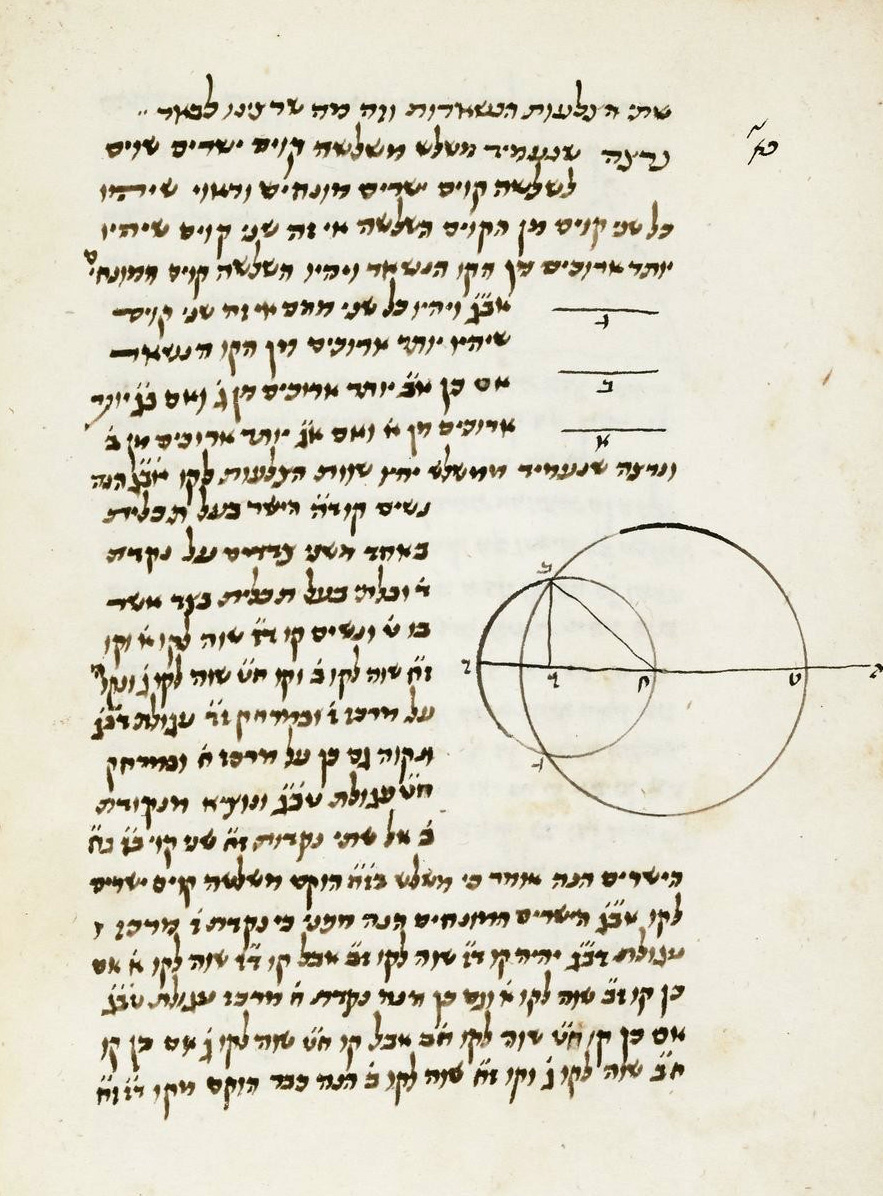 שתי הצלעות הנשארות וזה מה שרצינו לבאר
נרצה שנעמיד משלש משלשה קוים ישרים שוים
לשלשה קוים ישרים מונחים וראוי שיהיו
כל שני קוים מן הקוים השלשה אי זה שני קוים שיהיו
יותר ארוכים מן הקו הנשאר ויהיו השלשה קוים המונחים
אב̈ג̈ ויהיו כל שני מהם אי זה שני קוים
שיהיו יותר ארוכים מן הקו הנשאר
אם כן א̈ב̈ יותר ארוכים מן ג̇ ואם ב̈ג̈ יותר
ארוכים מן א̇ ואם א̈ג̈ יותר ארוכים מן ב̇
ונרצה שנעמיד ממשלש יהיו שוות הצלעות לקוי אב̈ג̈ הנה
נשים קו ד̈ה̈ הישר בעל תכלית
באחד משני צדדים על נקדת
ד̇ ובלתי בעל תכלית בצד אשר
בו ט̇ ונשים קו ד̈ז̈ שוה לקו א̇ וקו
ז̈ח̈ שוה לקו ב̇ וקו ח̈ט̈ שוה לקו ג̇
על מרכז ז̇ ובמרחק ז̈ד̈ עגולת דב̈ג̈
תקוה גם כן על מרכז ח̇ ובמרחק
ח̈ט̈ עגולת טב̈ג̈ ונוציא מנקודת
ב̇ אל שתי נקדות ז̈ח̈ שני קוי ב̈ז̈ ב̈ח̈
הישרים הנה אומר כי משלש בז̈ח̈ הוקם משלשה קוים ישרים
לקוי אב̈ג̈ הישרים המונחים הנה מפני כי נקדת ז̇ מרכז
עגולת דב̈ג̈ יהיה קו ד̈ז̈ שוה לקו ז̈ב̈ אבל קו ד̈ז̈ שוה לקו א̇ אם
כן קו ז̈ב̈ שוה לקו א̇ וגם כן הנה נקדת ח̇ מרכז עגולת טב̈ג̈
אם כן קו ח̈ט̈ שוה לקו ח̈ב̈ אבל קו ח̈ט̈ שוה לקו ג̇ אם כן קו
ח̈ב̈ שוה לקו ג̇ וקו ז̈ח̈ שוה לקו ב̇ הנה כבר הוקם מקוי ד̈ז̈ ז̈ח̈
ג
ב
א
ב
ח
ט
ה
ג